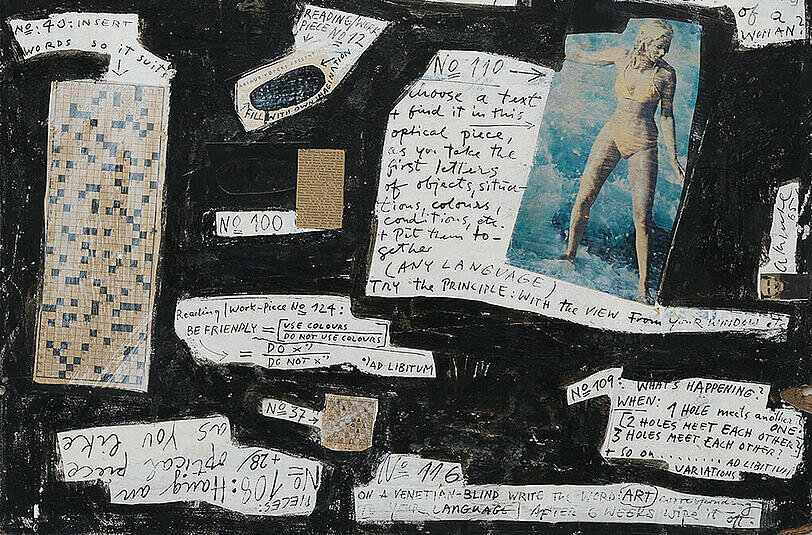 No: 40: INSERT
WORDS SO it suits
READING/WORK
PIECE No 12
FILL WITH OWN IMAGINATION
of a
WOMAN
No 110 →
choose a text
+ find it in this
optical piece,
as you take the
first letters
of objects, situa-
tions, colours,
conditions, etc.
+ Pit them to-
gether
(ANY LANGUAGE)
TRY the PRINCIPLE: WITH the VIEW from YOUR WINDOW etc
No 100
Reading/Work-Piece No 124:
BE FRIENDLY = USE COLOURS
DO NOT USE COLOURS
= DO x*)
DO NOT x*)
*) AD LIBITUM
No 37 →
No 109: WHAT'S HAPPENING?
WHEN: 1 HOLE meets another
ONE?
2 HOLES MEET EACH OTHER?
3 HOLES MEET EACH OTHER?
+ so on ........ AD LIBITUM
VARIATIONS
PIECES:
No 108: Hang an
+28/ optical piece
as you like
No 116
ON A VENETIAN-BLIND WRITE THE WORD: ART) corresponding
TO YOUR LANGUAGE / AFTER 6 WEEKS WIPE IT off.